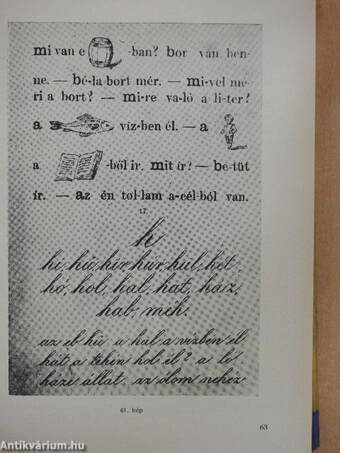 mi van e -ban? bor van ben-
ne. — bé-la bort mér. — mi-vel mé-
ri a bort? — mi-re va-ló a li-ter?
a víz-ben él. — a
a -ból ir. mit ír? — be-tűt
ír. — az én tol-lam a-cél-ból van.
17.
h
hi, hű, hir, húr, hul, hét,
hó, hol, hal, hat, ház,
hab, méh.
az eb hű a hal a vizben él
hát a tehén hol él? a ló
házi állat. az ólom nehéz
61. kép
63
Antikvárium.hu
antikvarium.hu